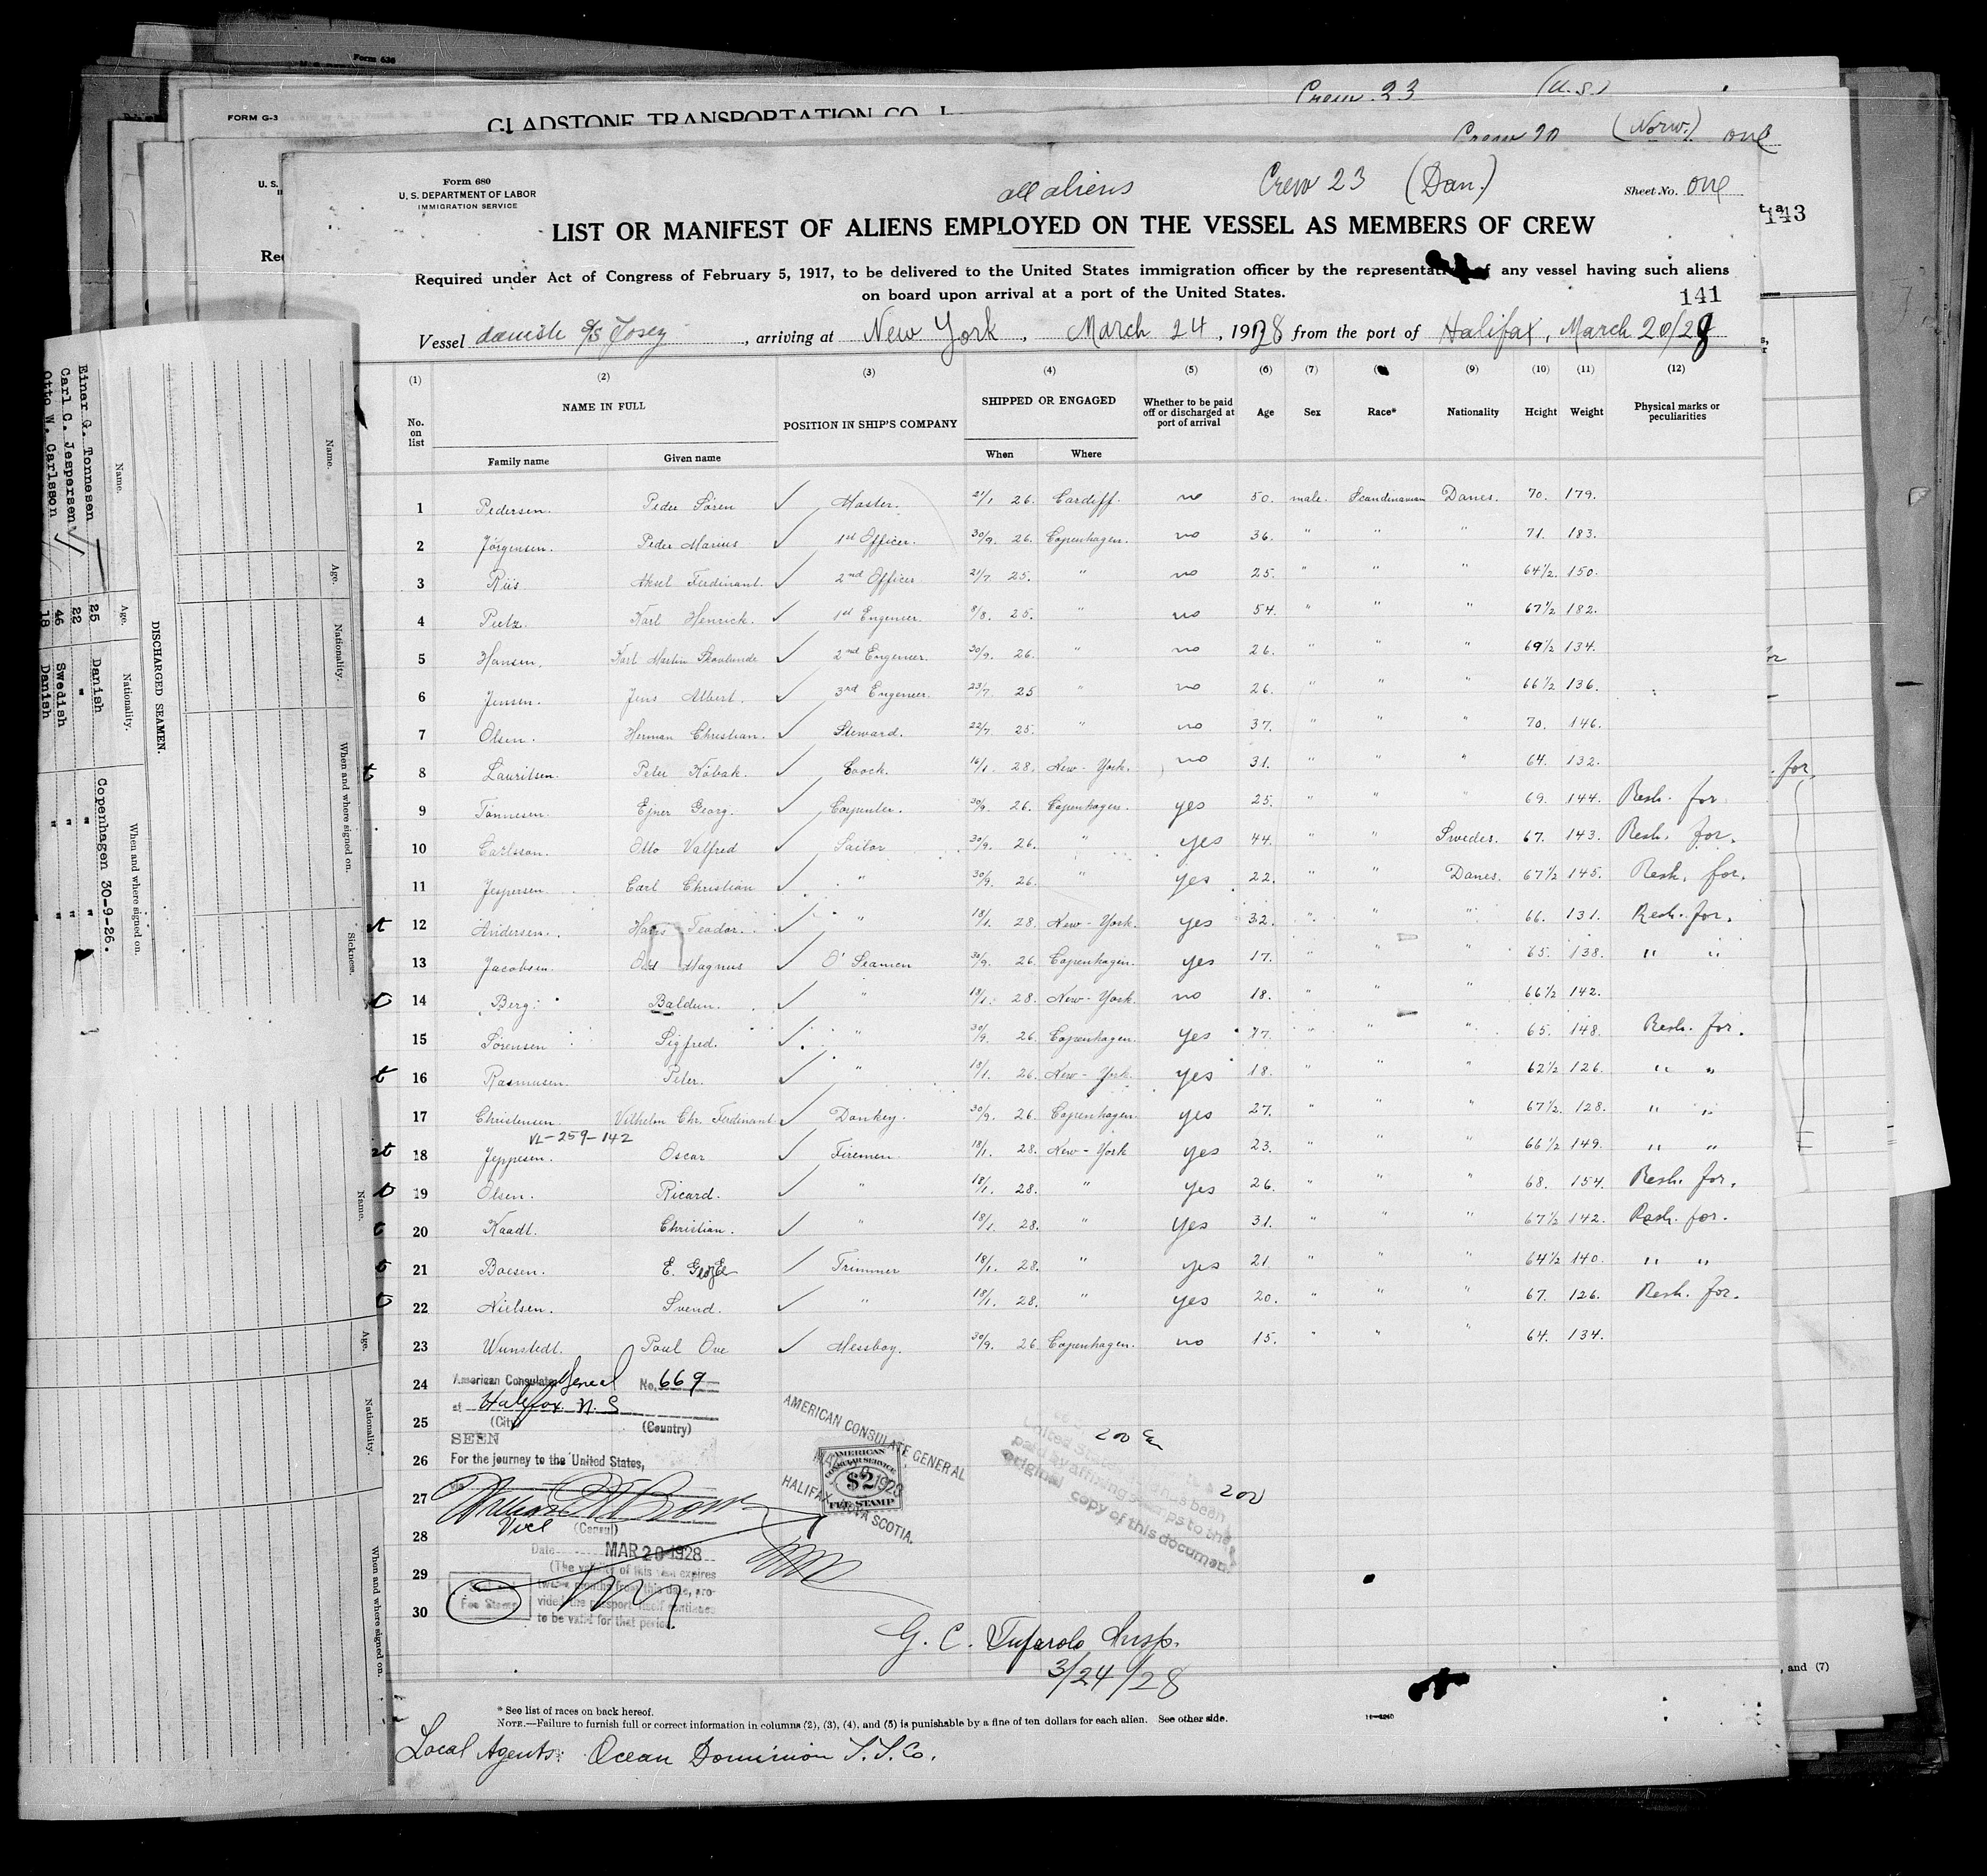 Form 630
FORM G-3
GLADSTONE TRANSPORTATION CO.
Crew 23 (U.S.)
Crew 20 (Norw.) one
143
Form 680
U. S. DEPARTMENT OF LABOR
IMMIGRATION SERVICE
all aliens
Crew 23 (Dan.)
Sheet No. one
LIST OR MANIFEST OF ALIENS EMPLOYED ON THE VESSEL AS MEMBERS OF CREW
Required under Act of Congress of February 5, 1917, to be delivered to the United States immigration officer by the representative of any vessel having such aliens
on board upon arrival at a port of the United States.
141
Vessel danish S/S Josey, arriving at New York, March 24, 1928 from the port of Halifax, March 20/28
(1) (2) (3) (4) (5) (6) (7) (9) (10) (11) (12)
No. on list NAME IN FULL POSITION IN SHIP'S COMPANY SHIPPED OR ENGAGED Whether to be paid off or discharged at port of arrival Age Sex Race* Nationality Height Weight Physical marks or peculiarities
Family name Given name When Where
1 Pedersen. Peder Sören ✓ Master. 21/1 26. Cardiff. no 50. male. Scandinavian Danes. 70. 179.
2 Jörgensen. Peder Marius ✓ 1st Officer. 30/9. 26. Copenhagen. no 36. " " " 71. 183.
3 Riis Aksel Ferdinant. ✓ 2nd Officer 21/7. 25. " no 25. " " " 64½. 150.
4 Pietz. Karl Henrick. ✓ 1st Engeneer. 8/8. 25. " no 54. " " " 67½ 182.
5 Hansen. Karl Martin Skovlunde ✓ 2nd Engeneer. 30/9. 26. " no 26. " " " 69½ 134.
6 Jensen. Jens Albert. ✓ 3rd Engeneer. 23/7. 25 " no 26. " " " 66½ 136.
7 Olsen. Herman Christian. ✓ Steward. 22/7. 25. " no 37. " " " 70. 146.
t 8 Lauritsen. Peter Kobak. ✓ Coock. 16/1. 28. New-York. no 31. " " " 64. 132.
9 Tönnesen. Ejner Georg. ✓ Carpenter. 30/9. 26. Copenhagen. yes 25. " " " 69. 144. Resh. for
10 Carlsson. Otto Valfred ✓ Sailor 30/9. 26. " yes 44. " " Swedes. 67. 143. Resh. for.
11 Jespersen Carl Christian ✓ " 30/9. 26. " yes 22. " " Danes. 67½ 145. Resh. for.
t 12 Andersen. Hans Teodor. ✓ " 18/1. 28. New-York. yes 32. " " " 66. 131. Resh. for.
13 Jacobsen. Magnus ✓ O' Seamen 30/9. 26. Copenhagen. yes 17. " " " 65. 138. " "
14 Berg. Baldun. ✓ " 18/1. 28. New-York. no 18. " " " 66½ 142.
15 Sörensen Sigfred. ✓ " 30/9. 26. Copenhagen. yes 17. " " " 65. 148. Resh. for.
t 16 Rasmusen. Peter. ✓ " 18/1. 26. New-York. yes 18. " " " 62½ 126. " "
17 Christensen. Vilhelm Chr. Ferdinant ✓ Donkey. 30/9. 26. Copenhagen. yes 27. " " " 67½. 128. " "
VL-259-142
18 Jeppesen. Oscar ✓ Firemen. 18/1. 28. New-York yes 23. " " " 66½ 149. " "
19 Olsen. Ricard. ✓ " 18/1. 28. " yes 26. " " " 68. 154. Resh. for.
20 Kaadt. Christian. ✓ " 18/1. 28. " yes 31. " " " 67½ 142. Resh. for.
21 Boesen. E. George ✓ Trimmer 18/1. 28. " yes 21 " " " 64½ 140. " "
22 Nielsen. Svend. ✓ " 18/1. 28. " yes 20. " " " 67. 126. Resh. for.
23 Wunstedt. Poul Ove ✓ Messboy. 30/9. 26 Copenhagen. no 15. " " " 64. 134.
24 American Consulate General No. 669
25 at Halifax N. S
(City) (Country)
SEEN
26 For the journey to the United States,
27
28 Vice (Consul)
Date MAR 20 1928
29 (The validity of this visa expires
twelve months from this date, pro-
vided the passport itself continues
30 to be valid for that period.
Fee Stamp
AMERICAN CONSULATE GENERAL
HALIFAX, NOVA SCOTIA.
AMERICAN
CONSULAR SERVICE
$2
FEE STAMP
200
200
original copy of this document
G. C. Tufarolo Insp.
3/24/28
* See list of races on back hereof.
NOTE.—Failure to furnish full or correct information in columns (2), (3), (4), and (5) is punishable by a fine of ten dollars for each alien. See other side.
Local Agents: Ocean Dominion S.S. Co.
, and (7)
DISCHARGED SEAMEN.
Name. Age. Nationality. When and where signed on.
Einar G. Tonnesen 25 Danish Copenhagen 30-9-26.
Carl C. Jespersen 22 " " "
Otto W. Carlsson 46 Swedish " "
18 Danish " "
Name. Age. Nationality. When and where signed on. Sickness.
Name. Age. Nationality. When and where signed on.